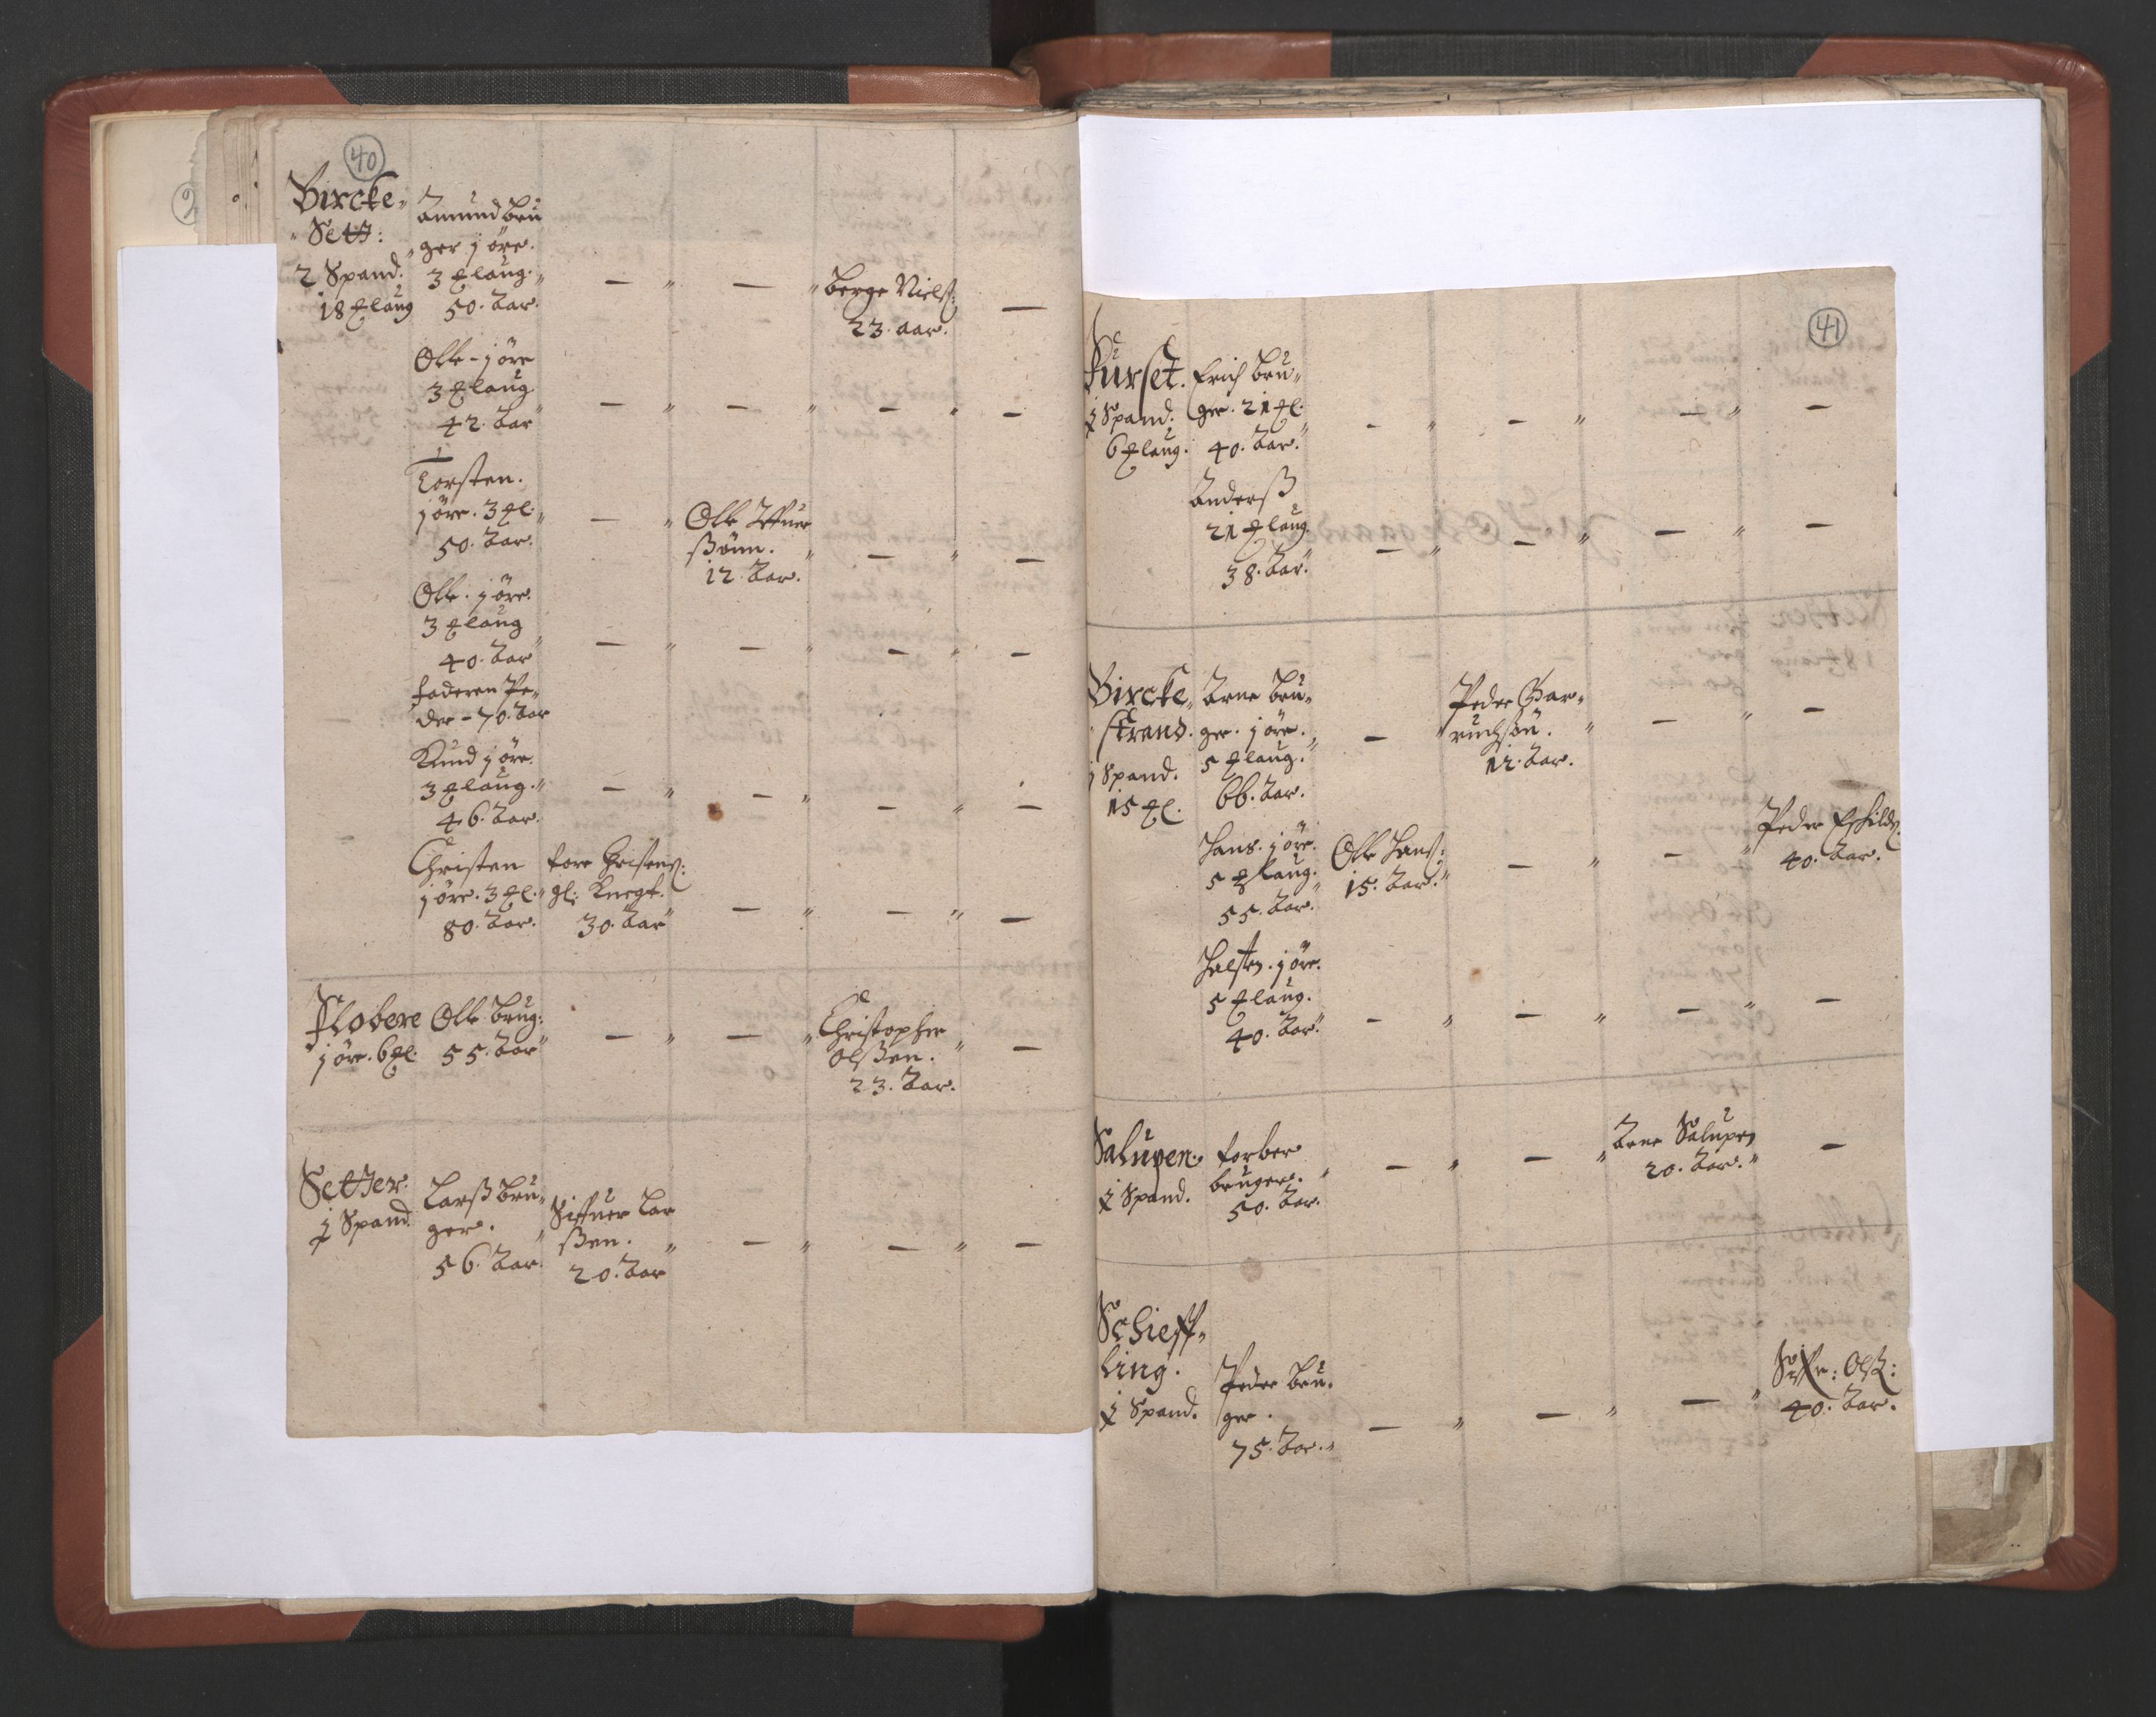 40
Bircke-
Sett:
2 Spand.
18 ℔laug
Amund bru
ger j øre.
3 ℔laug.
50. Aar.
Berge Nielß:
23. aar.
Olle - j øre
3 ℔laug
42. Aar
Torsten.
j øre. 3 ℔l.
50. Aar.
Olle
ßønn.
12. Aar.
Olle. j øre.
3 ℔laug
40. Aar
faderen Pe-
der - 70. Aar
Knud j øre.
3 ℔laug.
46. Aar.
Christen
j øre. 3 ℔l.
80. Aar.
Tore Christenß:
gl: Knegt.
30. Aar
Flobere
j øre. 6 ℔l.
Olle brug:
55. Aar
Christopher
Olßen.
23. Aar.
Setter.
½ Spand
Larß bru-
ger.
56. Aar
Siffuer Lar
ßen.
20. Aar
41
Furset.
½ Spand.
6 ℔laug.
Erich bru-
ger. 21 ℔l.
40. Aar.
Anderß
21 ℔laug.
38. Aar.
Bircke-
strand.
j Spand.
15 ℔l.
Arne bru-
ger. j øre.
5 ℔laug.
66. Aar.
Peder
12. Aar.
Hans. j øre.
5 ℔laug.
55. Aar.
Olle Hanß:
15. Aar.
Peder Eschildß.
40. Aar.
Halsten. j øre.
5 ℔laug.
40. Aar.
Salupen.
½ Spand.
Torber
bruger.
50. Aar.
Arne Salupen
20. Aar.
Schieff-
ling.
½ Spand.
Peder bru-
ger.
75. Aar.
Olß:
40. Aar.